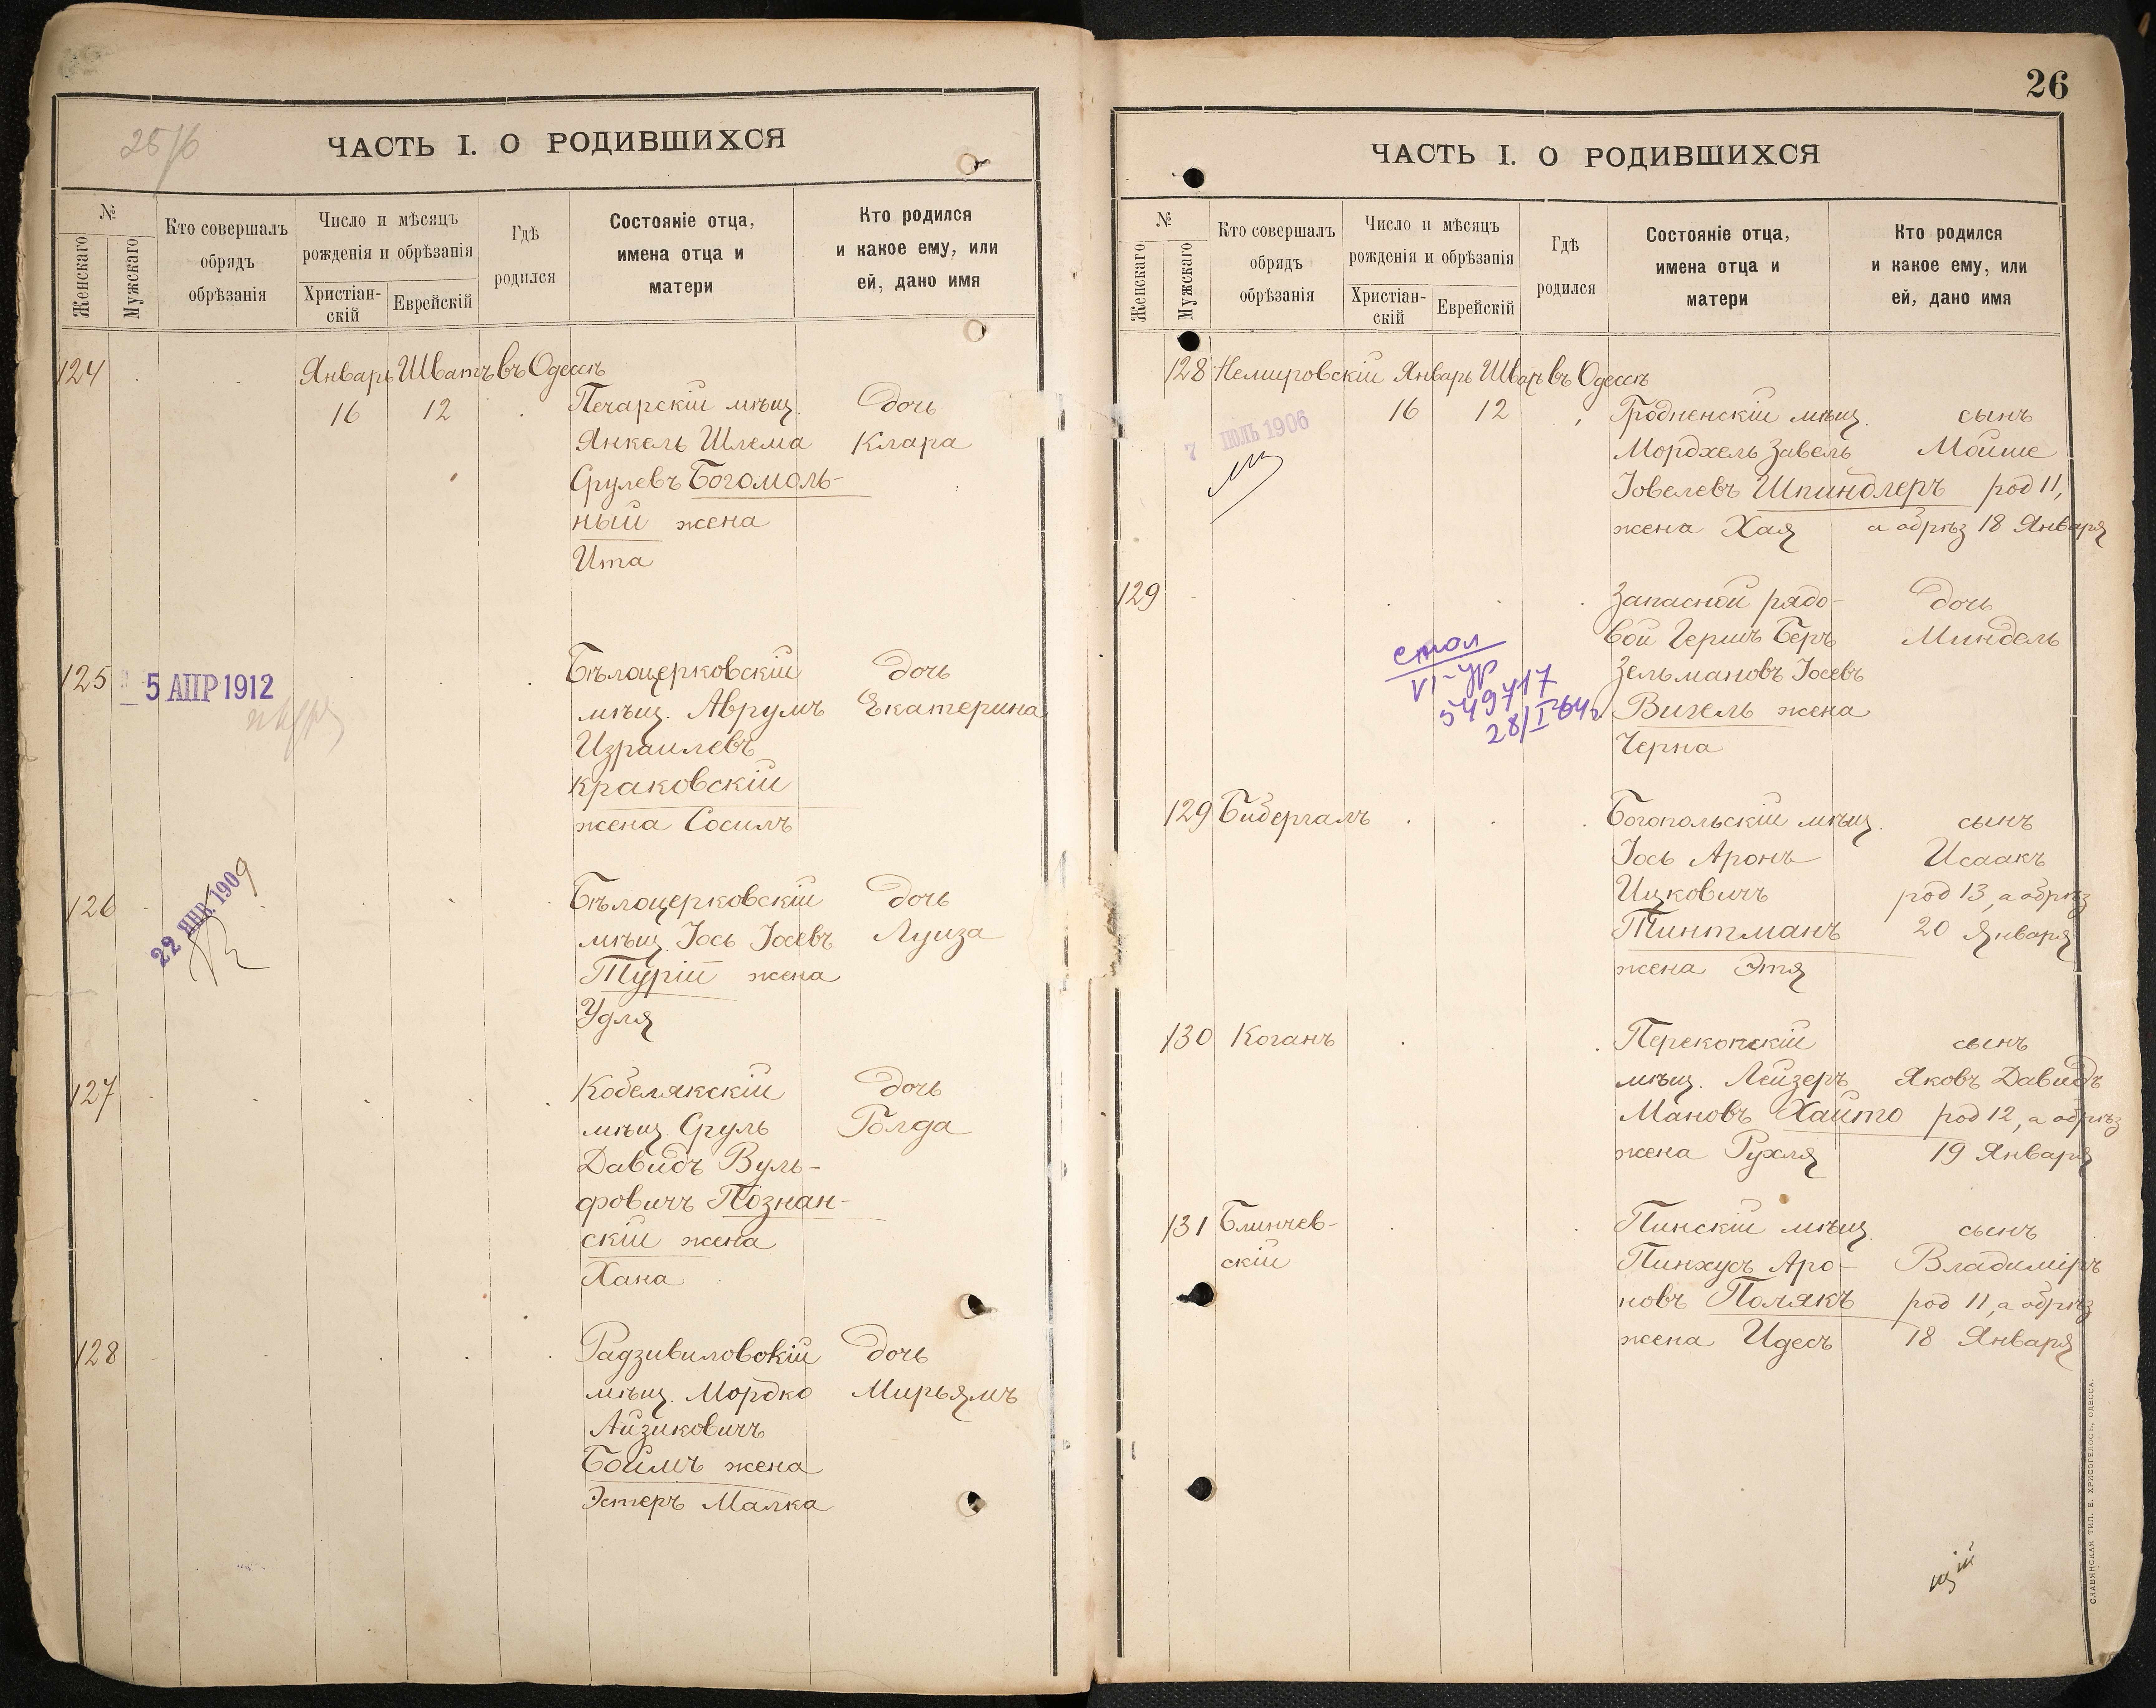 25/6
ЧАСТЬ I. О РОДИВШИХСЯ
№
Женскаго
Мужскаго
Кто совершалъ
обрядъ
обрѣзанія
Число и мѣсяцъ
рожденія и обрѣзанія
Христіан-
скій
Еврейскій
Гдѣ
родился
Состояніе отца,
имена отца и
матери
Кто родился
и какое ему, или
ей, дано имя
124 Январь Шватъ въ Одессѣ
16 12 Печарскій мѣщ. дочь
Янкель Шлема Клара
Срулевъ Богомоль-
ный жена
Ита
125 5 АПР 1912 Бѣлоцерковскій дочь
мѣщ. Аврумъ Екатерина
Израилевъ
Краковскій
жена Сосилъ
126 22 ЯНВ 1909 Бѣлоцерковскій дочь
мѣщ. Іось Іосевъ Луиза
Турій жена
Удля
127 Кобелякскій дочь
мѣщ. Сруль Голда
Давидъ Вуль-
фовичъ Познан-
скій жена
Хана
128 Радзивиловскій дочь
мѣщ. Мордко Мирьямъ
Айзиковичъ
Боймъ жена
Эстеръ Малка
26
ЧАСТЬ I. О РОДИВШИХСЯ
№
Женскаго
Мужскаго
Кто совершалъ
обрядъ
обрѣзанія
Число и мѣсяцъ
рожденія и обрѣзанія
Христіан-
скій
Еврейскій
Гдѣ
родился
Состояніе отца,
имена отца и
матери
Кто родился
и какое ему, или
ей, дано имя
128 Немировскій Январь Шватъ въ Одессѣ
7 ІЮЛЬ 1906 16 12 Гродненскій мѣщ. сынъ
Мордхель Завель Мойше
Іовелевъ Шпиндлеръ род 11,
жена Хая а обрѣз 18 Января
129 Запасной рядо- дочь
вой Гершъ Беръ Миндель
Зельмановъ Іосевъ
Вигель жена
Черна
стол
VI-ур
549717
28/I-64г
129 Бидергалъ Богопольскій мѣщ. сынъ
Іось Аронъ Исаакъ
Ицковичъ род 13, а обрѣз
Тинтманъ 20 Января
жена Этя
130 Коганъ Перекопскій сынъ
мѣщ. Лейзеръ Яковъ Давидъ
Мановъ Хайто род 12, а обрѣз
жена Рухля 19 Января
131 Блинчев- Пинскій мѣщ. сынъ
скій Пинхусъ Аро- Владиміръ
новъ Полякъ род 11, а обрѣз
жена Идесъ 18 Января
СЛАВЯНСКАЯ ТИП. Е. ХРИСОГЕЛОСЪ, ОДЕССА.